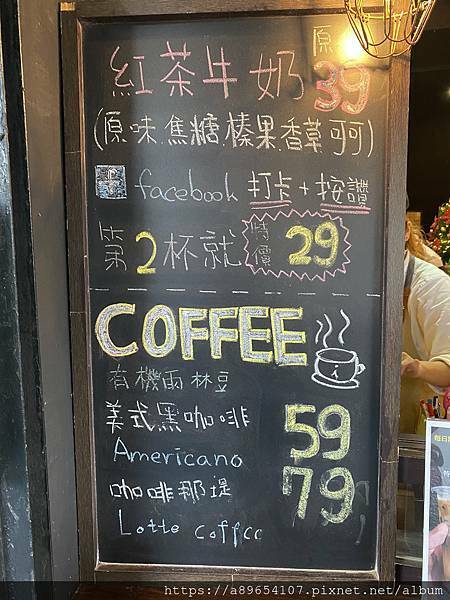 紅茶牛奶 原 39
(原味.焦糖.榛果.香草.可可)
facebook 打卡+按讚
第2杯就 特價 29
COFFEE
有機雨林豆
美式黑咖啡 59
Americano
咖啡那堤 79
Lotte coffee
每日
https://a89654107.pixnet.net/album